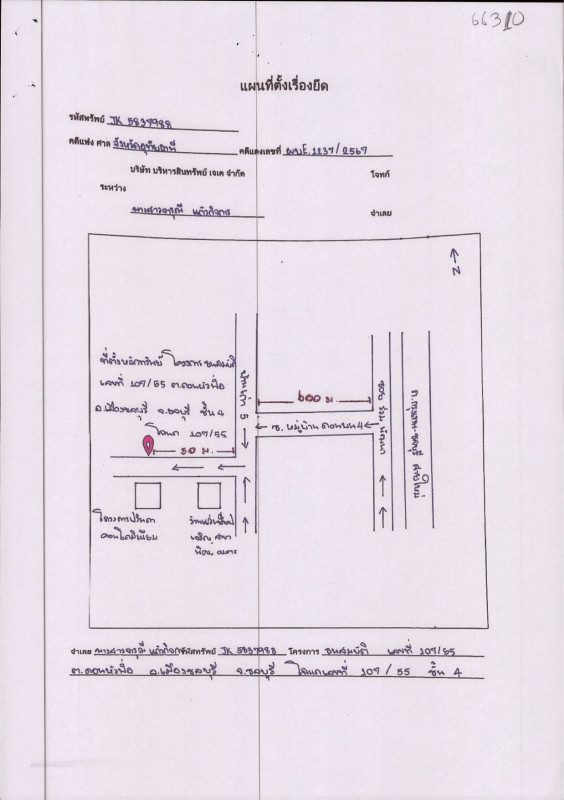 66310
แผนที่ตั้งเรื่องยึด
รหัสทรัพย์ JK 5837988
คดีแพ่ง ศาล จังหวัดอุทัยธานี คดีแดงเลขที่ ผบE.1237/2567
บริษัท บริหารสินทรัพย์ เจเค จำกัด โจทก์
ระหว่าง
นางสาวจรุณี แก้วกิจกร จำเลย
N
ที่ตั้งหลักทรัพย์ โครงการ ธนสมบัติ
เลขที่ 107/55 ต.ดอนหัวฬ่อ
อ.เมืองชลบุรี จ.ชลบุรี ชั้น 4
โฉนด 107/55
50 ม.
600 ม.
ซ. หมู่บ้าน ดอนบน 4
ซอย
ถ.กรุงเทพ-ชลบุรี สายใหม่
โครงการปรีนดา
คอนโดมิเนียม
เจริญ สาขา
จำเลย นางสาวจรุณี แก้วกิจกร รหัสทรัพย์ JK 5837988 โครงการ ธนสมบัติ เลขที่ 107/55
ต.ดอนหัวฬ่อ อ.เมืองชลบุรี จ.ชลบุรี โฉนดเลขที่ 107/55 ชั้น 4